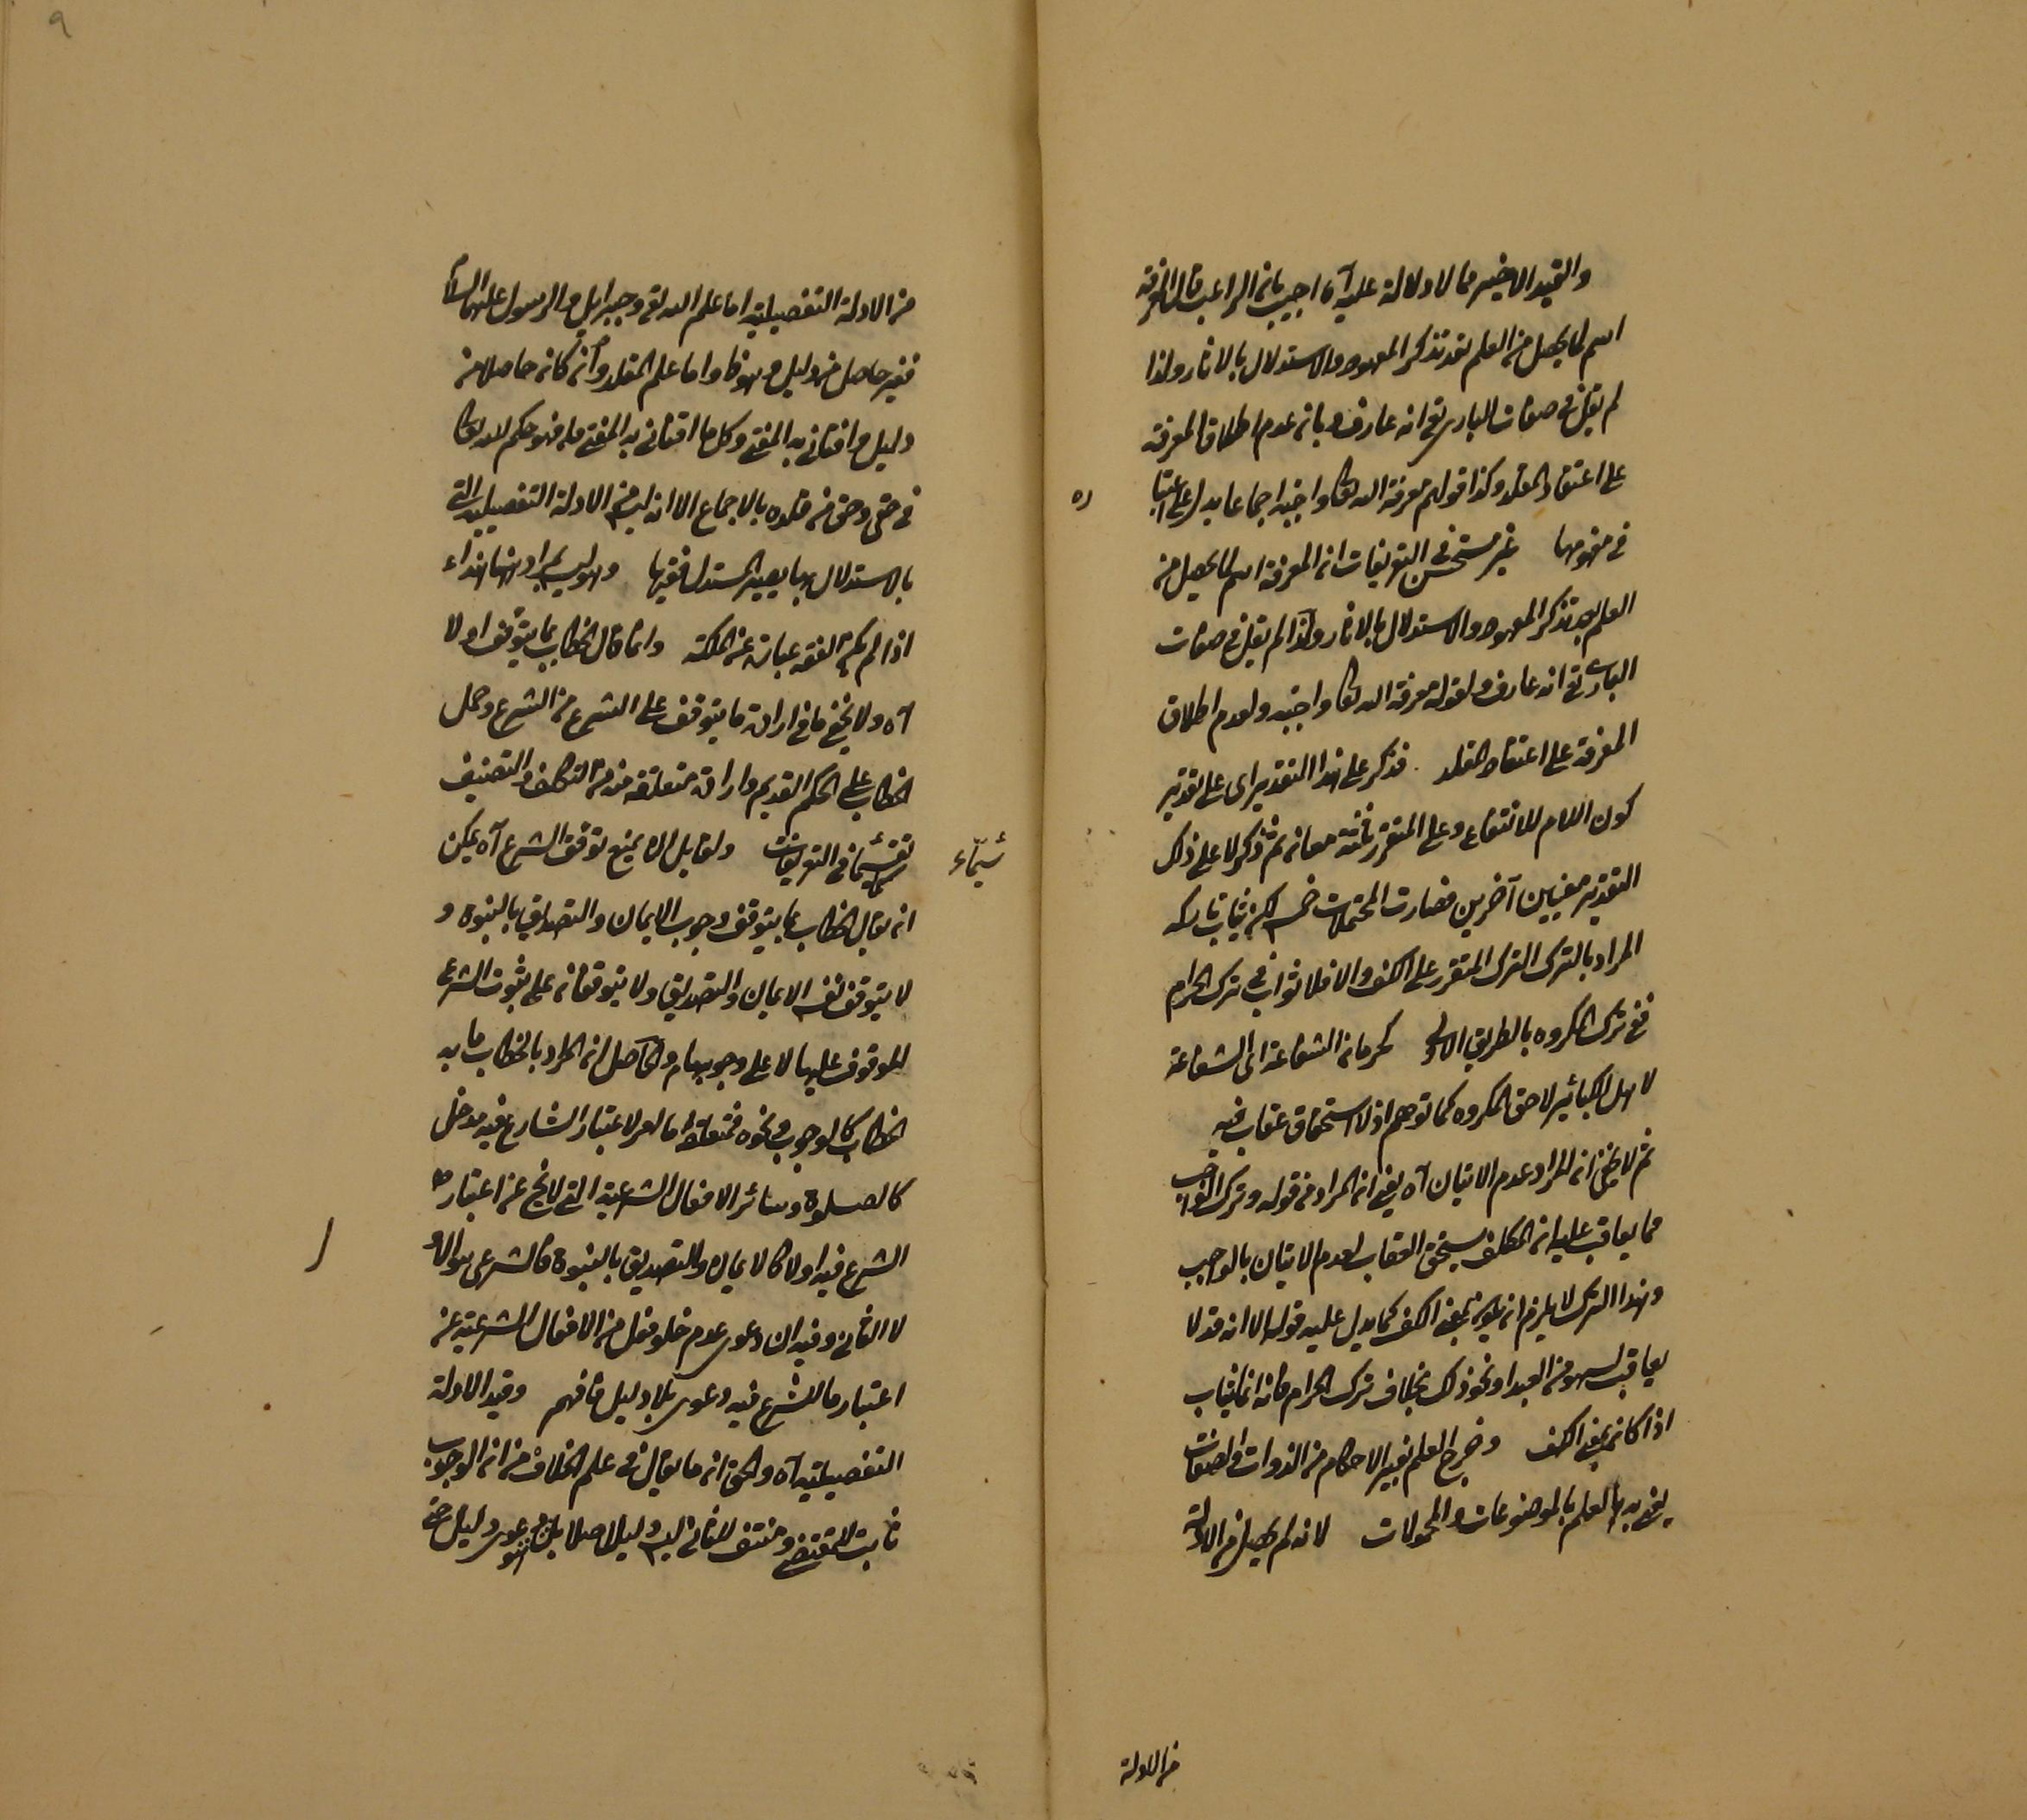 والقيد الاخير مما لا دلالة عليه آه اجيب بان الراغب قال المعرفة
اسم لما يحصل من العلم بعد تذكر المعهود والاستدلال بالاثار ولذا
لم يقل في صفات الباري تعالى انه عارف وبان عدم اطلاق المعرفة
على اعتقاد المقلد وكذا قولهم معرفة الله تعالى واجبة اجماعا يدل على اعتبا
ره
في مفهومها غير مستحسن في التعريفات ان المعرفة اسم لما يحصل من
العلم بعد تذكر المعهود والاستدلال بالاثار ولذا لم يقل في صفات
الباري تعالى انه عارف ولقوله معرفة الله تعالى واجبة ولعدم اطلاق
المعرفة على اعتقاد المقلد فذكر على هذا التقدير اى على تقدير
كون اللام للانتفاع وعلى للتضرر ثلثة معان ثم ذكر لا على ذلك
التقدير معنيين آخرين فصارت المحتملات خمسة لكن يثاب تاركه
المراد بالترك الترك المتقرر على الكف والا فلا ثواب في ترك الحرام
ففي ترك المكروه بالطريق الاولى كحرمان الشفاعة اى الشفاعة
لاهل الكبائر لا حق المكروه كما توهم اذ لا استحقاق عقاب فيه
ثم لا يخفى ان المراد عدم الاتيان آه يعني ان المراد من قوله وترك الواجب
مما يعاقب عليه ان المكلف يستحق العقاب لعدم الاتيان بالواجب
وهذا الترك لا يلزم ان يكون بمعنى الكف كما يدل عليه قوله الا انه قد لا
يعاقب لسهو من العبد او نحو ذلك بخلاف ترك الحرام فانه انما يثاب
اذا كان بمعنى الكف وخرج العلم بغير الاحكام من الذوات والصفات
يعني به العلم بالموضوعات والمحمولات لانه لم يحصل من الادلة
من الادلة
٩
من الادلة التفصيلية اما علم الله تعالى وجبرائيل والرسول عليهما السلام
فغير حاصل من دليل وهو ظ واما علم المقلد وان كان حاصلا من
دليل وافتاني به المفتي وكل ما افتاني به المفتي فهو حكم الله تعالى
في حقي وحق من قلده بالاجماع الا انه ليس من الادلة التفصيلية التي
بالاستدلال بها يصير المستدل فقيها وهو ليس بمراد هنا هذا
اذا لم يكن الفقه عبارة عن الملكة وانما قال الخطاب بما يتوقف او لا
آه ولا يخفى ما في ارادة ما يتوقف على الشرع من الشرع وحمل
الخطاب على الحكم القديم وارادة متعلقه منه من التكلف والتصنيف
شيماء
لا سيما في التعريفات ولقايل ان يمنع توقف الشرع آه يمكن
ان يقال الخطاب بما يتوقف وجوب الايمان والتصديق بالنبوة و
لا يتوقف نفس الايمان والتصديق ولا يتوقفان على ثبوت الشرع
الموقوف عليهما لا على وجوبهما والحاصل ان المراد بالخطاب ما به
الخطاب كالوجوب ونحوه فمتعلقه اما لعدم لاعتبار الشارع فيه مدخل
كالصلوة وسائر الافعال الشرعية التي لا تخ عن اعتبار
الشرع فيه اولا كالايمان والتصديق بالنبوة فالشرعى هو الاول
لا الثاني وفيه ان دعوى عدم خلو فعل من الافعال الشرعية عن
اعتبار ما للشرع فيه دعوى بلا دليل فافهم وقيد الادلة
التفصيلية آه والحق ان ما يقال في علم الخلاف من ان الوجوب
ثابت للمقتضى ومنتف للنافي ليس دليلا اصلا بل هو دعوى دليل خفى